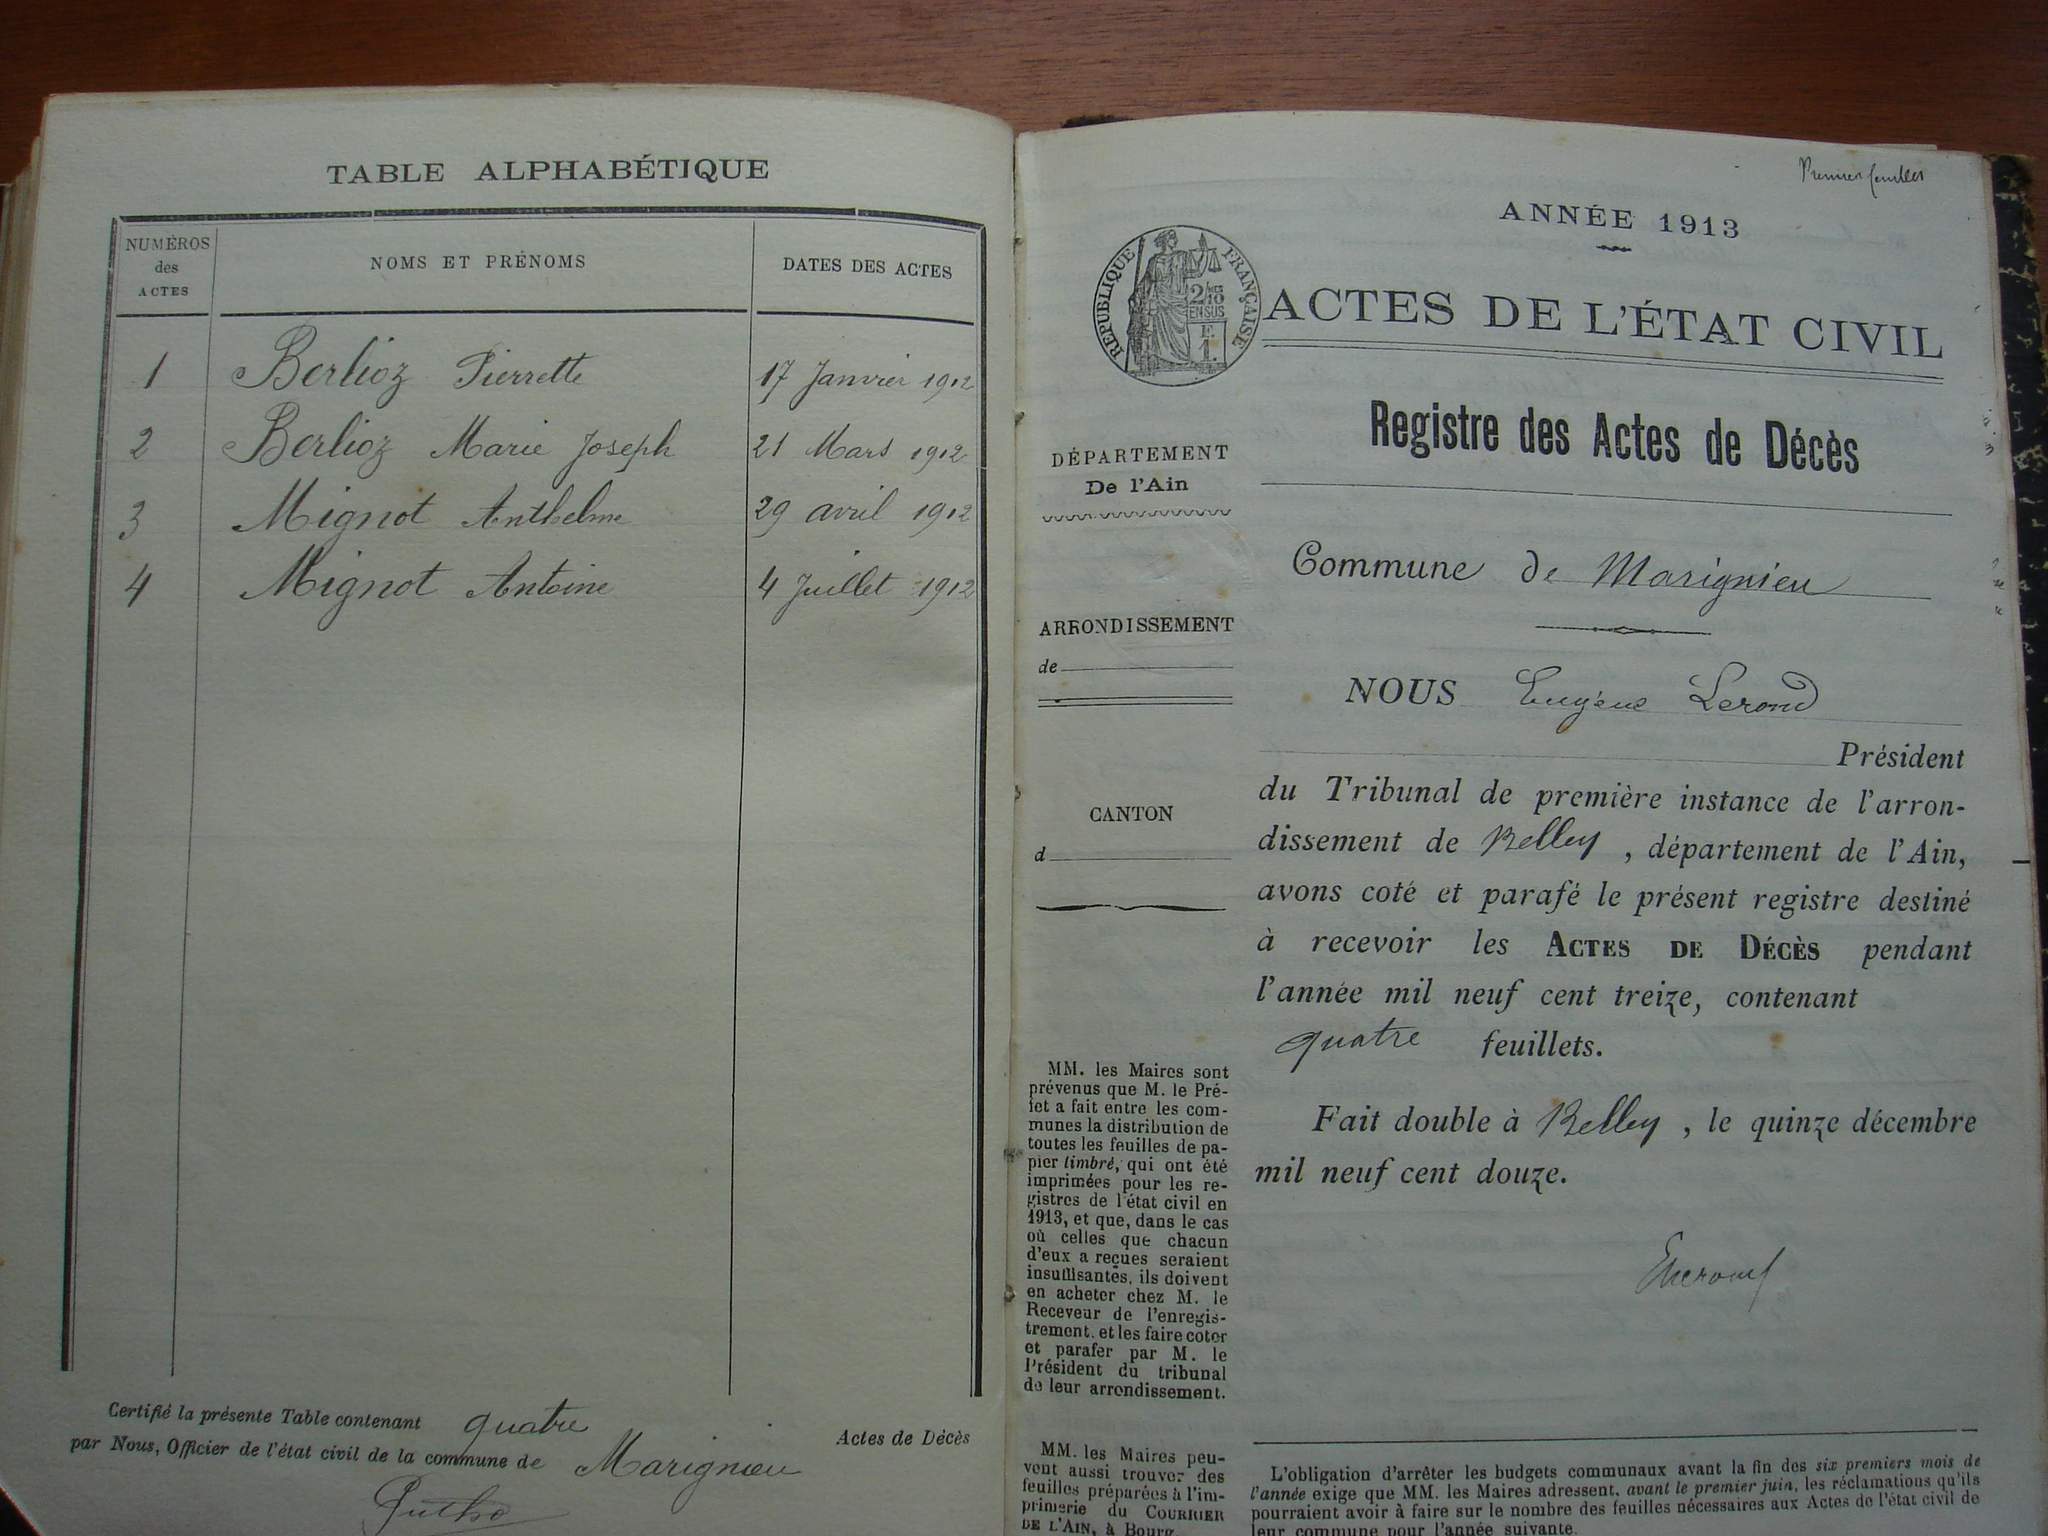 TABLE ALPHABÉTIQUE
NUMÉROS
des
ACTES
NOMS ET PRÉNOMS
DATES DES ACTES
1 Berlioz Pierrette 17 Janvier 1912
2 Berlioz Marie Joseph 21 Mars 1912
3 Mignot Anthelme 29 avril 1912
4 Mignot Antoine 4 Juillet 1912
Certifié la présente Table contenant quatre Actes de Décès
par Nous, Officier de l'état civil de la commune de Marignieu
Premier feuillet
ANNÉE 1913
RÉPUBLIQUE FRANÇAISE
2/10
EN SUS
F.
1.
ACTES DE L'ÉTAT CIVIL
Registre des Actes de Décès
DÉPARTEMENT
De l'Ain
ARRONDISSEMENT
de
CANTON
d
MM. les Maires sont
prévenus que M. le Pré-
fet a fait entre les com-
munes la distribution de
toutes les feuilles de pa-
pier timbré, qui ont été
imprimées pour les re-
gistres de l'état civil en
1913, et que, dans le cas
où celles que chacun
d'eux a reçues seraient
insuffisantes, ils doivent
en acheter chez M. le
Receveur de l'enregis-
trement, et les faire coter
et parafer par M. le
Président du tribunal
de leur arrondissement.
MM. les Maires peu-
vent aussi trouver des
feuilles préparées à l'im-
primerie du COURRIER
DE L'AIN, à Bourg.
Commune de Marignieu
NOUS Eugène Lerond
Président
du Tribunal de première instance de l'arron-
dissement de Belley, département de l'Ain,
avons coté et parafé le présent registre destiné
à recevoir les ACTES DE DÉCÈS pendant
l'année mil neuf cent treize, contenant
quatre feuillets.
Fait double à Belley, le quinze décembre
mil neuf cent douze.
L'obligation d'arrêter les budgets communaux avant la fin des six premiers mois de
l'année exige que MM. les Maires adressent, avant le premier juin, les réclamations qu'ils
pourraient avoir à faire sur le nombre des feuilles nécessaires aux Actes de l'état civil de
leur commune pour l'année suivante.